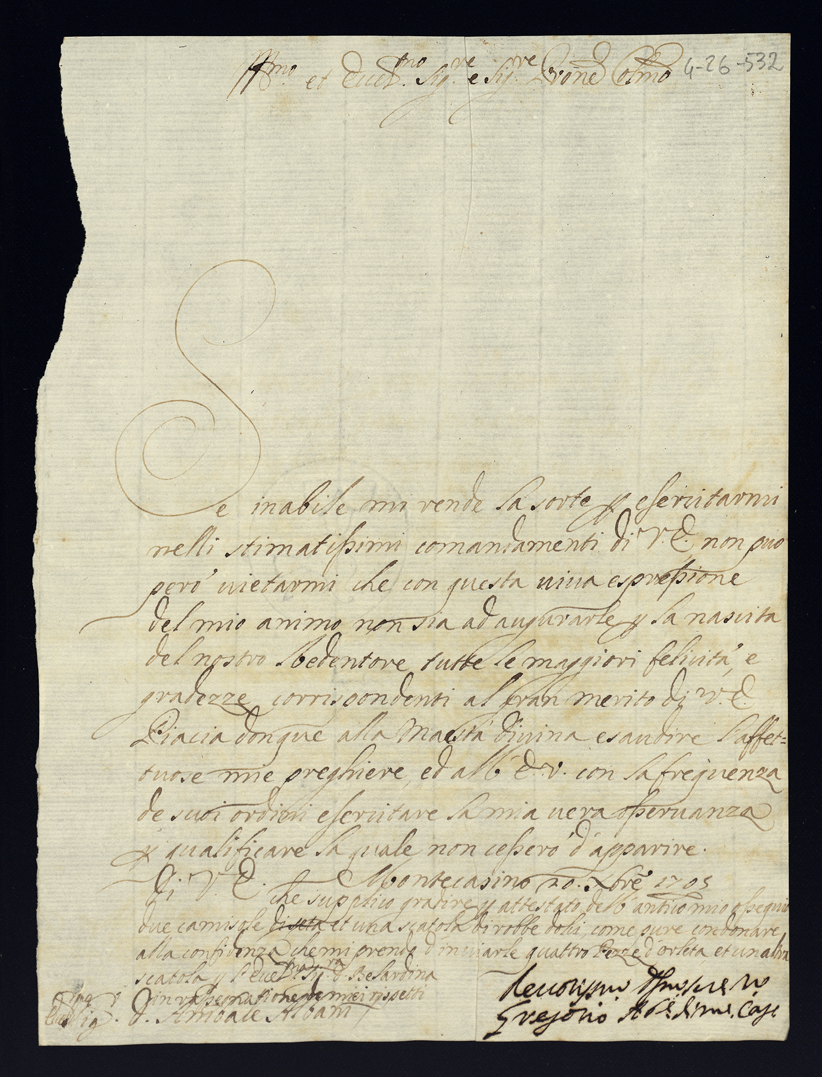 Ill.mo et Ecc.mo Sig.re e Sig.re Prone Colmo 4-26-532
Se inabile mi rende la sorte p esercitarmi
nelli stimatissimi comandamenti di V. E. non può
però vietarmi che con questa viva espressione
del mio animo non sia ad augurarle p la nascita
del nostro Redentore tutte le maggiori felicità, e
gradezze corrispondenti al gran merito di V. E.
Piacia donque alla Maestà divina esaudire l'affet=
tuose mie preghiere, ed all' E. V. con la frequenza
de suoi ordini esercitare la mia vera osservanza
p qualificare la quale non cesserò d'apparire.
Di V. E. Montecasino 20. Xbre 1705
che supplico gradire p attestato del antico mio ossequio
due camisole di seta et una scatola di robbe dolci, come pure condonare
alla confidenza che mi prendo d'inviarle quattro Pezze d'orleta et una altra
scatola p l'Ecc.ma Sig.ra D. Belardina
con rassegnatione de miei rispetti
Sig. D. Annibale Albani
Gregorio Ab. di M. Cas.